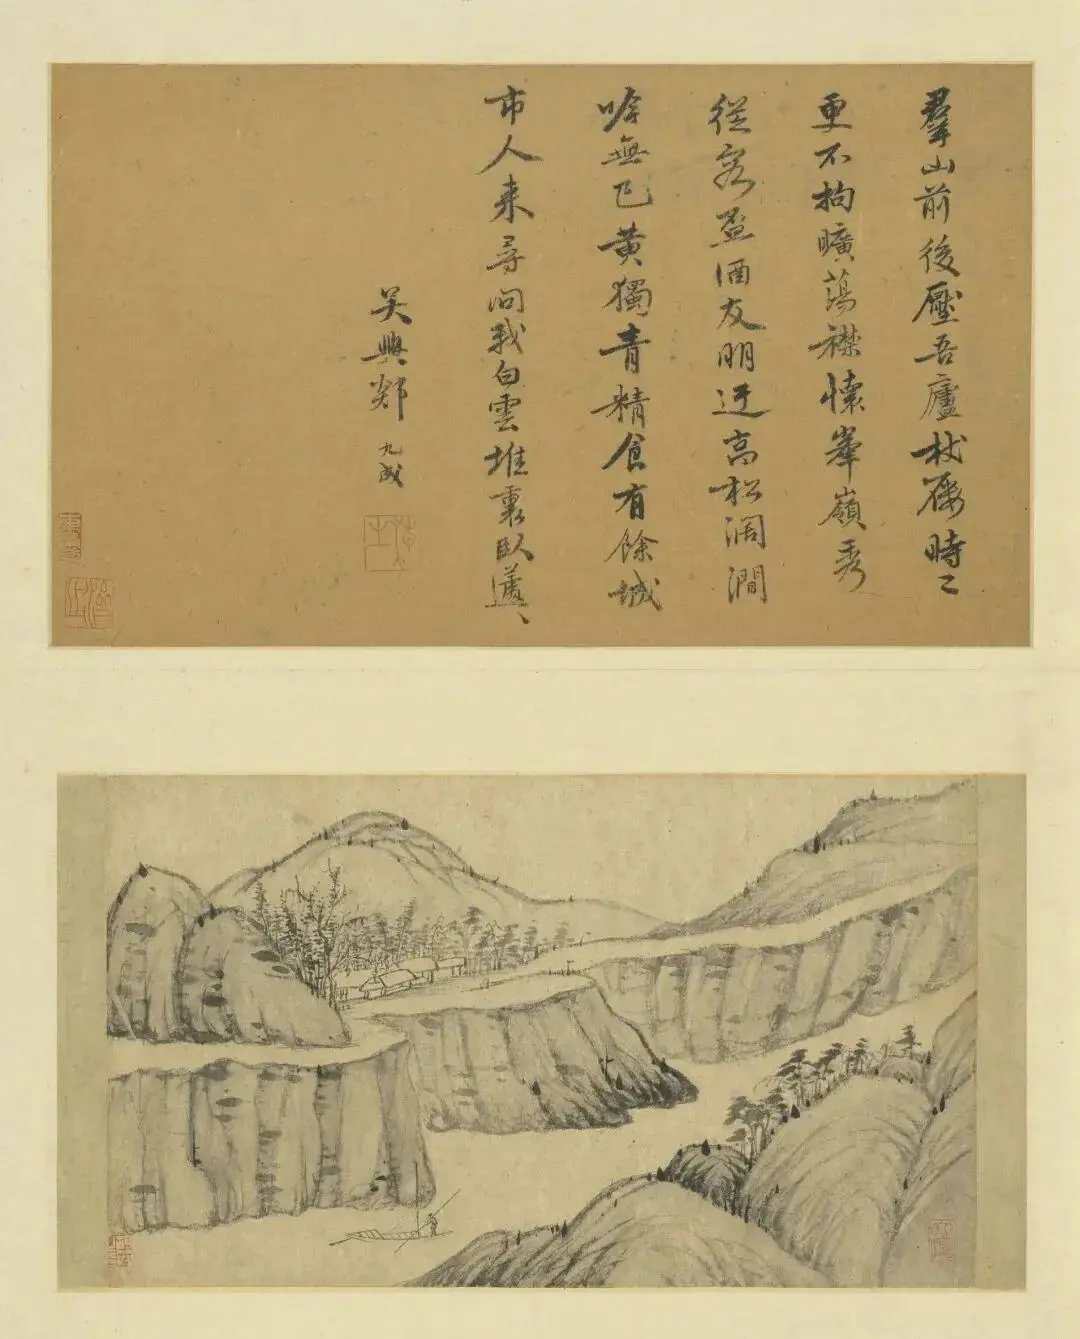 羣山前後壓吾廬杖屨時〻
更不拘曠蕩襟懷峯嶺秀
從容盃酒友朋迂高松濶澗
吟無已黄獨青精食有餘城
市人来尋問我白雲堆裏臥蘧〻
吴興郯九成